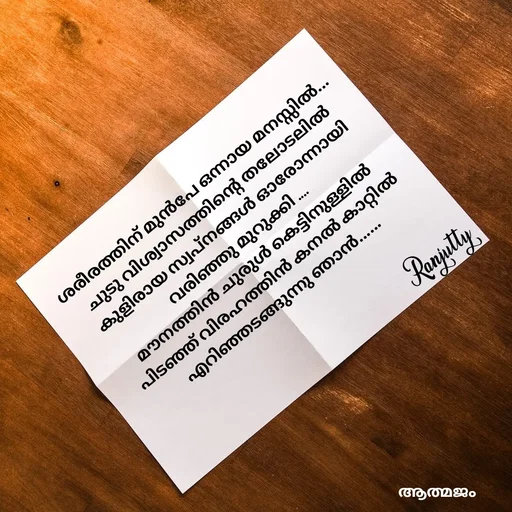 ശരീരത്തിന് മുൻപേ ഒന്നായ മനസ്സിൽ...
ചുടു വിശ്വാസത്തിന്റെ തലോടലിൽ
കുളിരായ സ്വപ്നങ്ങൾ ഓരോന്നായി
വരിഞ്ഞു മുറുക്കി ....
മൗനത്തിൻ ചുരുൾ കെട്ടിനുള്ളിൽ
പിടഞ്ഞ് വിരഹത്തിൻ കനൽ കാറ്റിൽ
എറിഞ്ഞടങ്ങുന്നു ഞാൻ......
Ranjutty
ആത്മജം